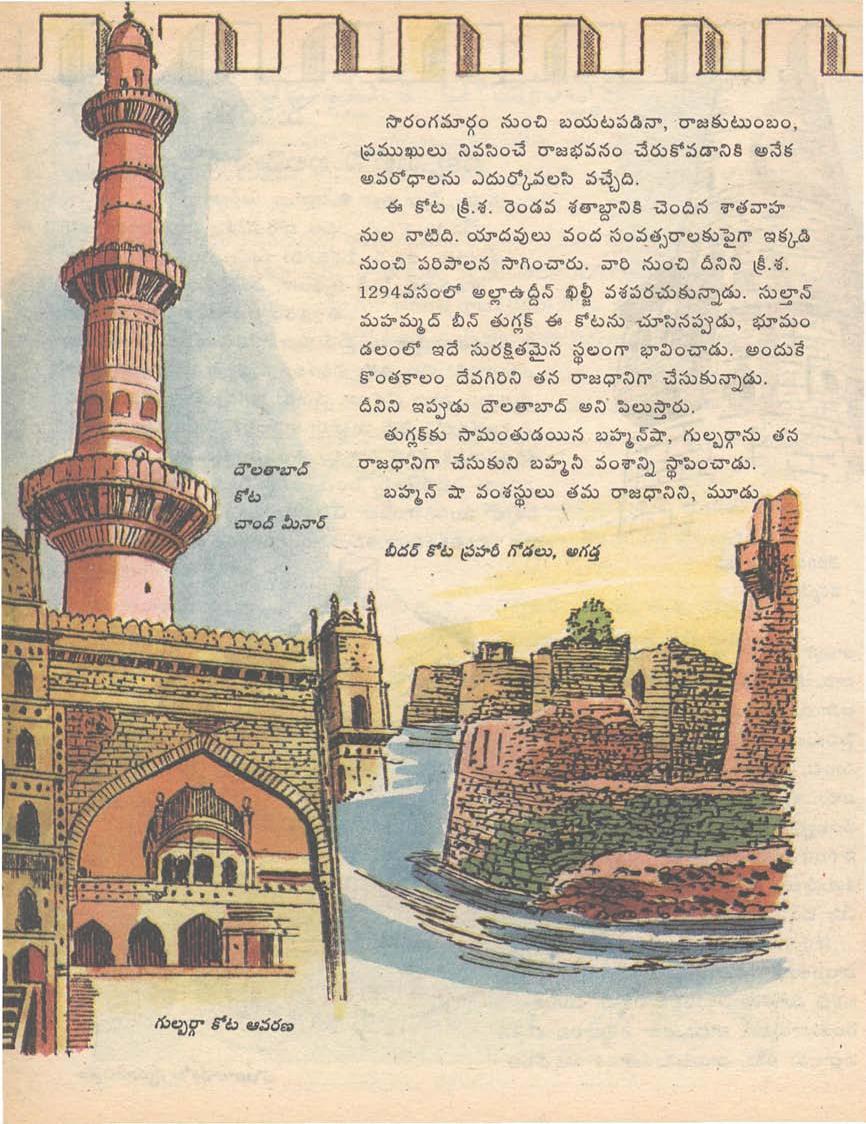 సొరంగమార్గం నుంచి బయటపడినా, రాజకుటుంబం,
ప్రముఖులు నివసించే రాజభవనం చేరుకోవడానికి అనేక
అవరోధాలను ఎదుర్కోవలసి వచ్చేది.
ఈ కోట క్రీ.శ. రెండవ శతాబ్దానికి చెందిన శాతవాహ
నుల నాటిది. యాదవులు వంద సంవత్సరాలకుపైగా ఇక్కడి
నుంచి పరిపాలన సాగించారు. వారి నుంచి దీనిని క్రీ.శ.
1294వసంలో అల్లాఉద్దీన్ ఖిల్జీ వశపరచుకున్నాడు. సుల్తాన్
మహమ్మద్ బీన్ తుగ్లక్ ఈ కోటను చూసినప్పుడు, భూమం
డలంలో ఇదే సురక్షితమైన స్థలంగా భావించాడు. అందుకే
కొంతకాలం దేవగిరిని తన రాజధానిగా చేసుకున్నాడు.
దీనిని ఇప్పుడు దౌలతాబాద్ అని పిలుస్తారు.
తుగ్లక్‌కు సామంతుడయిన బహ్మన్‌షా, గుల్బర్గాను తన
రాజధానిగా చేసుకుని బహ్మనీ వంశాన్ని స్థాపించాడు.
బహ్మన్ షా వంశస్థులు తమ రాజధానిని, మూడు
దౌలతాబాద్
కోట
చాంద్ మీనార్
బీదర్ కోట ప్రహరీ గోడలు, అగడ్త
గుల్బర్గా కోట ఆవరణ